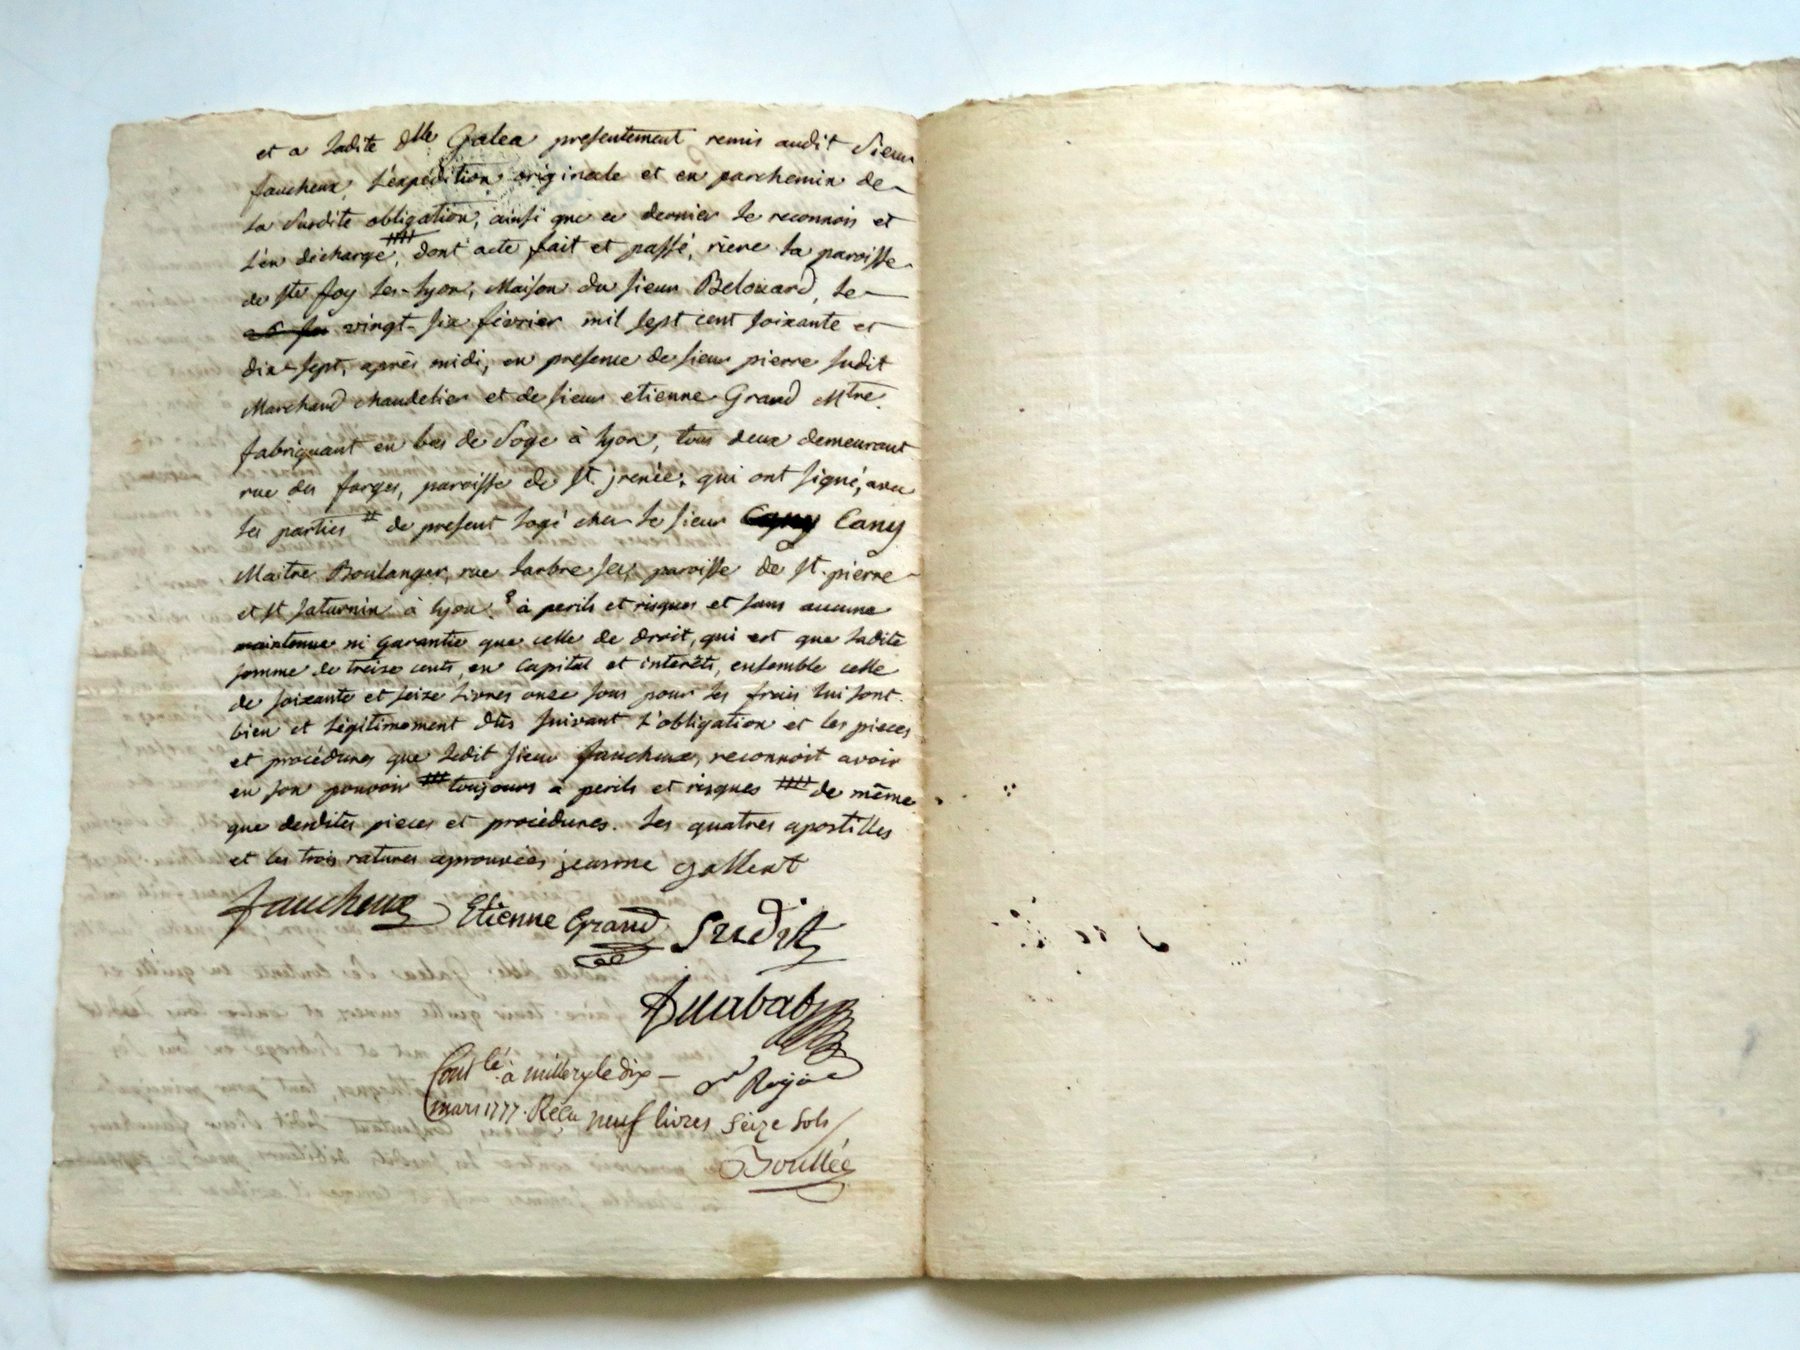 et a ladite dlle Galea presentement remis audit Sieur
faucheux, L'expédition originale et en parchemin de
la susdite obligation, ainsi que ce dernier le reconnois et
l'en décharge, dont acte fait et passé, riere la paroisse
de Ste foy Les-Lyon, Maison du sieur Belouard, le
vingt-six février mil sept cent soixante et
dix-sept, après midi, en presence de sieur pierre Sudit
Marchand chandelier et de sieur etienne Grand Mtre
fabriquant en bas de Soye à lyon, tous deux demeurant
rue des farges, paroisse de St. jrenée; qui ont signé, avec
les parties # de present logé chez le sieur Cany
Maitre Boulanger, rue Larbre sec, paroisse de St. pierre
et St saturnin à lyon. à perils et risques et sans aucune
maintenue ni garantie que celle de droit, qui est que ladite
somme de treize cents, en capital et intérêts, ensemble celle
de soixante et seize livres onze sous pour les frais lui sont
bien et légitimement dûs suivant l'obligation et les pieces
et procédures que ledit sieur faucheux, reconnoit avoir
en son pouvoir toujours a perils et risques de même
que desdites pieces et procédures. Les quatres apostilles
et les trois ratures aprouvées jeanne gallent
faucheux Etienne Grand Sudit
Contlé à millery le dix
mars 1777. Reçu neuf livres seize sols
Boullée